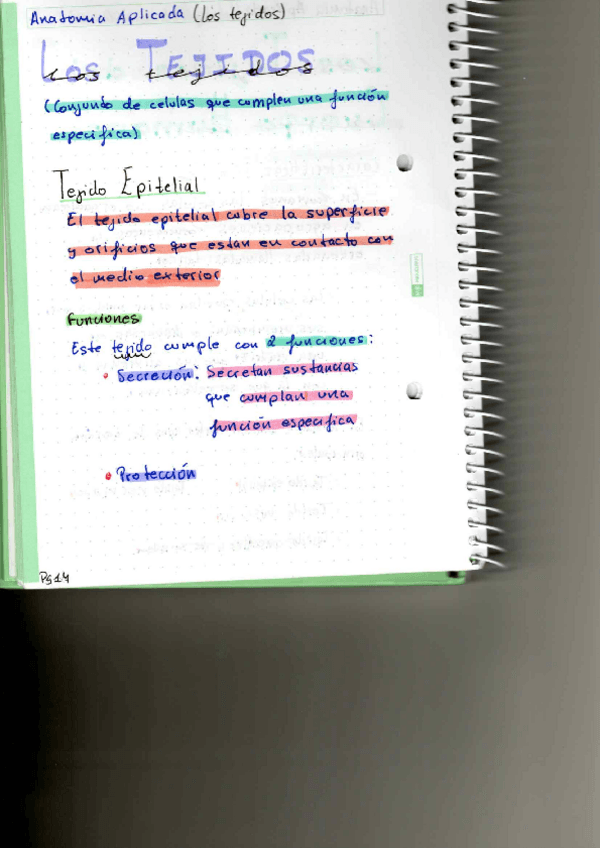 Anatomia Aplicada (Los tejidos)
Los TEJIDOS
Los tejidos
(Conjundo de celulas que cumplen una función
especifica)
Tejido Epitelial
El tejido epitelial cubre la superficie
y orificios que estan en contacto con
el medio exterior
Funciones
Este tejido cumple con 2 funciones:
• Secreción: Secretan sustancias
que cumplan una
función especifica
• Protección
Pg 14